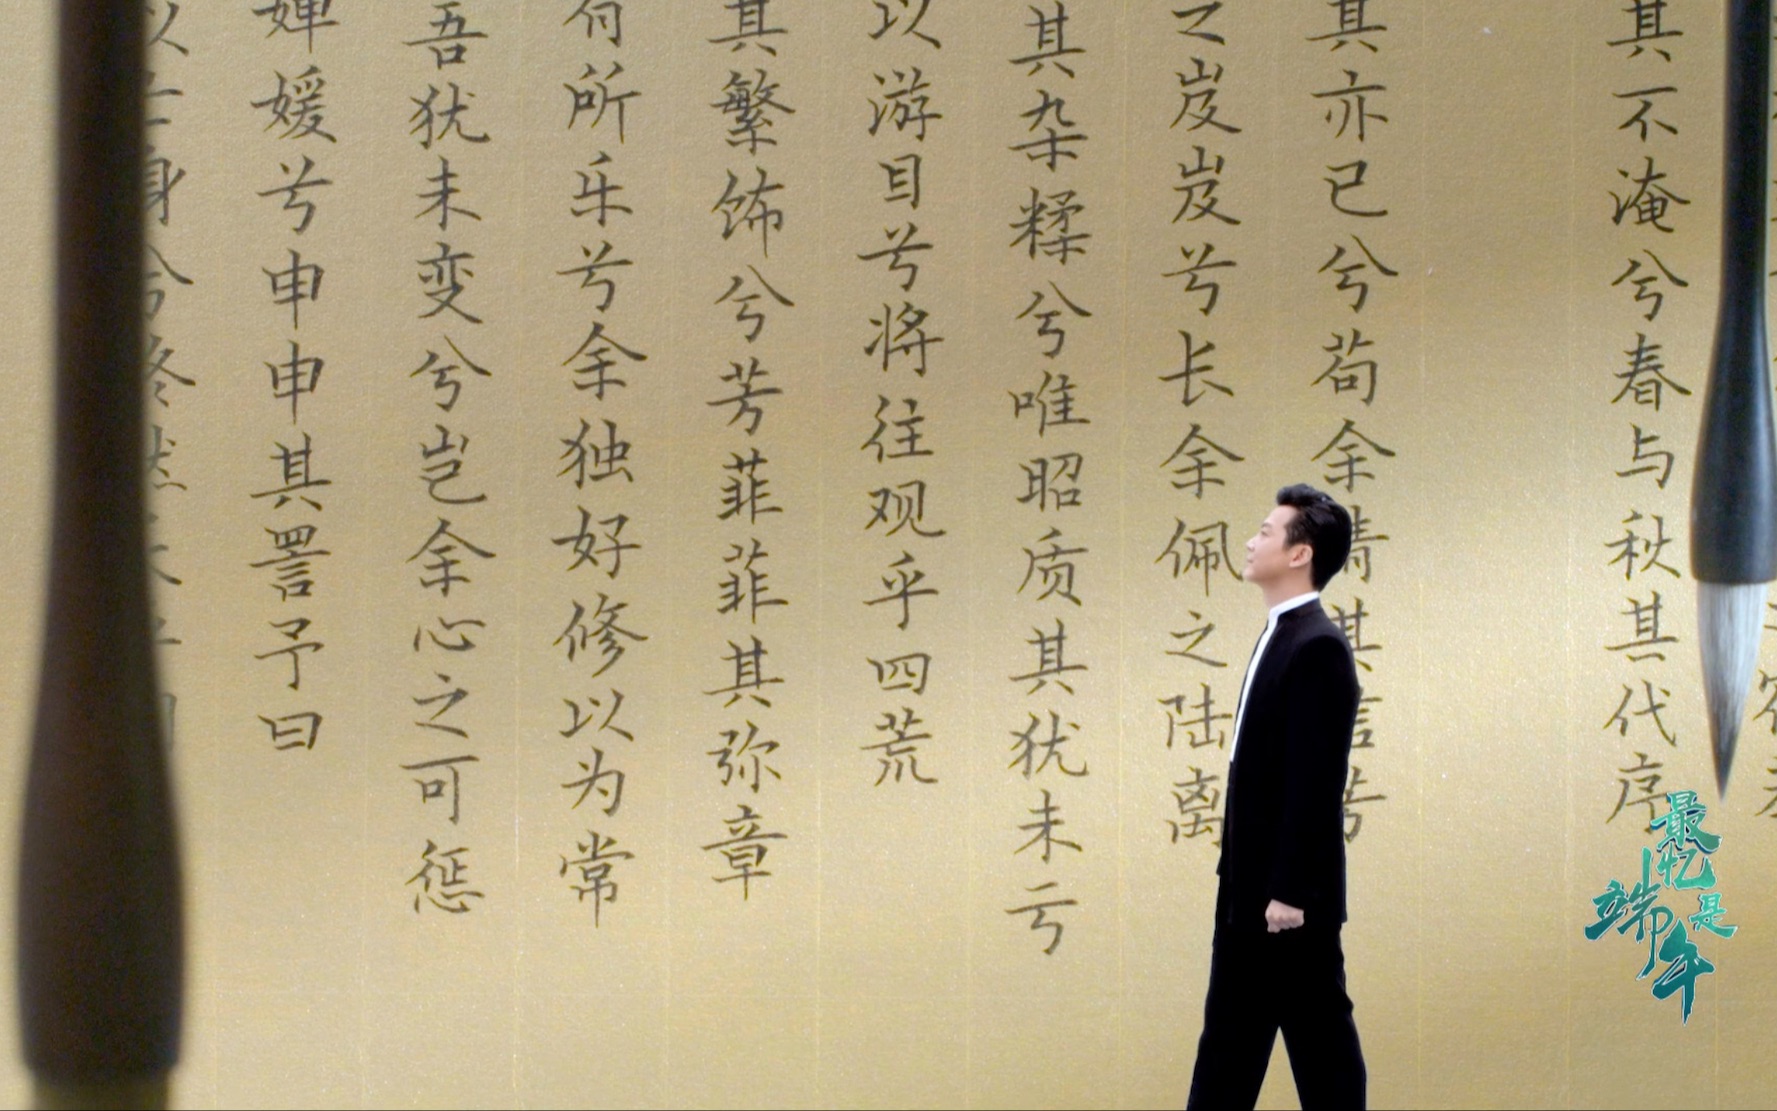 其不淹兮春与秋其代序
其亦已兮苟余情其信芳
之岌岌兮长余佩之陆离
其杂糅兮唯昭质其犹未亏
以游目兮将往观乎四荒
其繁饰兮芳菲菲其弥章
有所乐兮余独好修以为常
吾犹未变兮岂余心之可惩
婵媛兮申申其詈予曰
最忆是端午